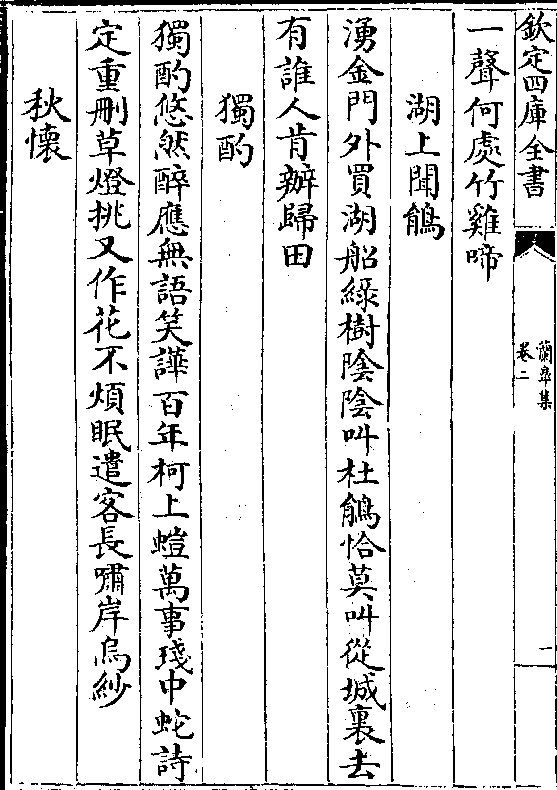 欽定四庫全書
蘭臯集
卷二
二
一聲何處竹雞啼
湖上聞鵑
湧金門外買湖船綠樹陰陰叫杜鵑恰莫叫從城裏去
有誰人肯辦歸田
獨酌
獨酌悠然醉應無語笑譁百年柯上螘萬事琖中蛇詩
定重刪草燈挑又作花不煩眠遣客長嘯岸烏紗
秋懷